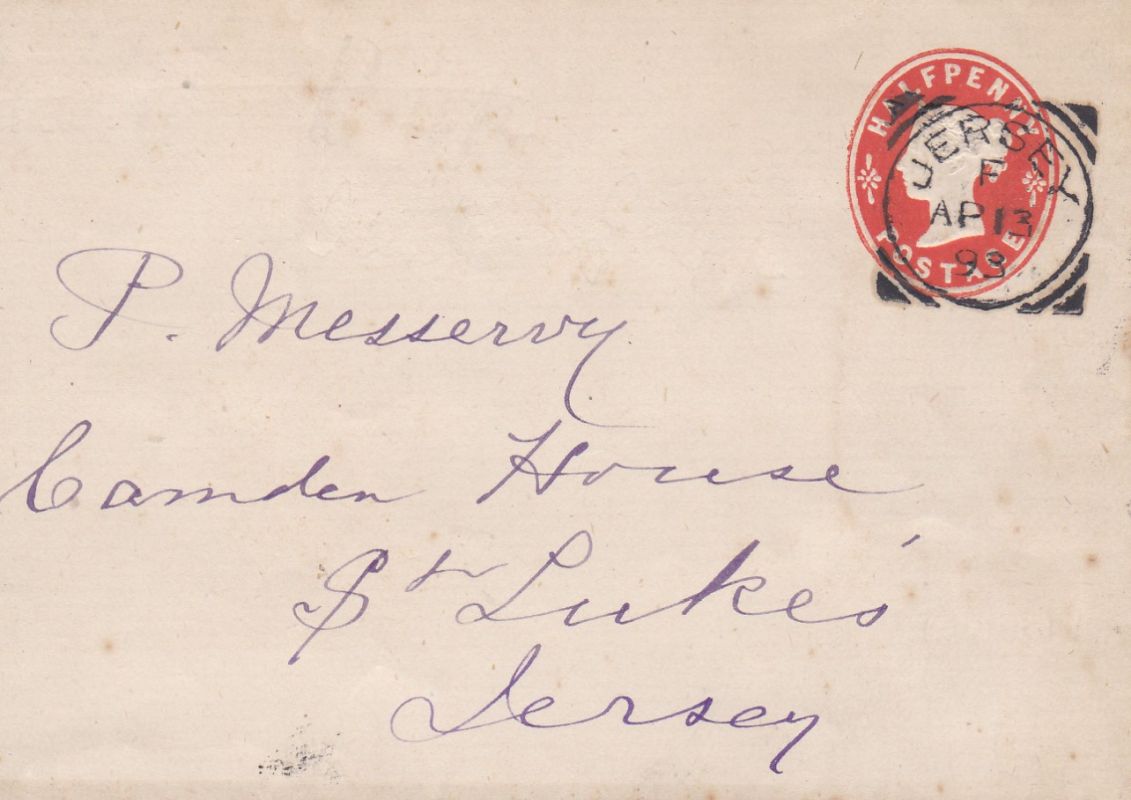 HALFPENNY
POSTAGE
JERSEY
F
AP 13
93
P. Messervy
Camden House
St Luke's
Jersey